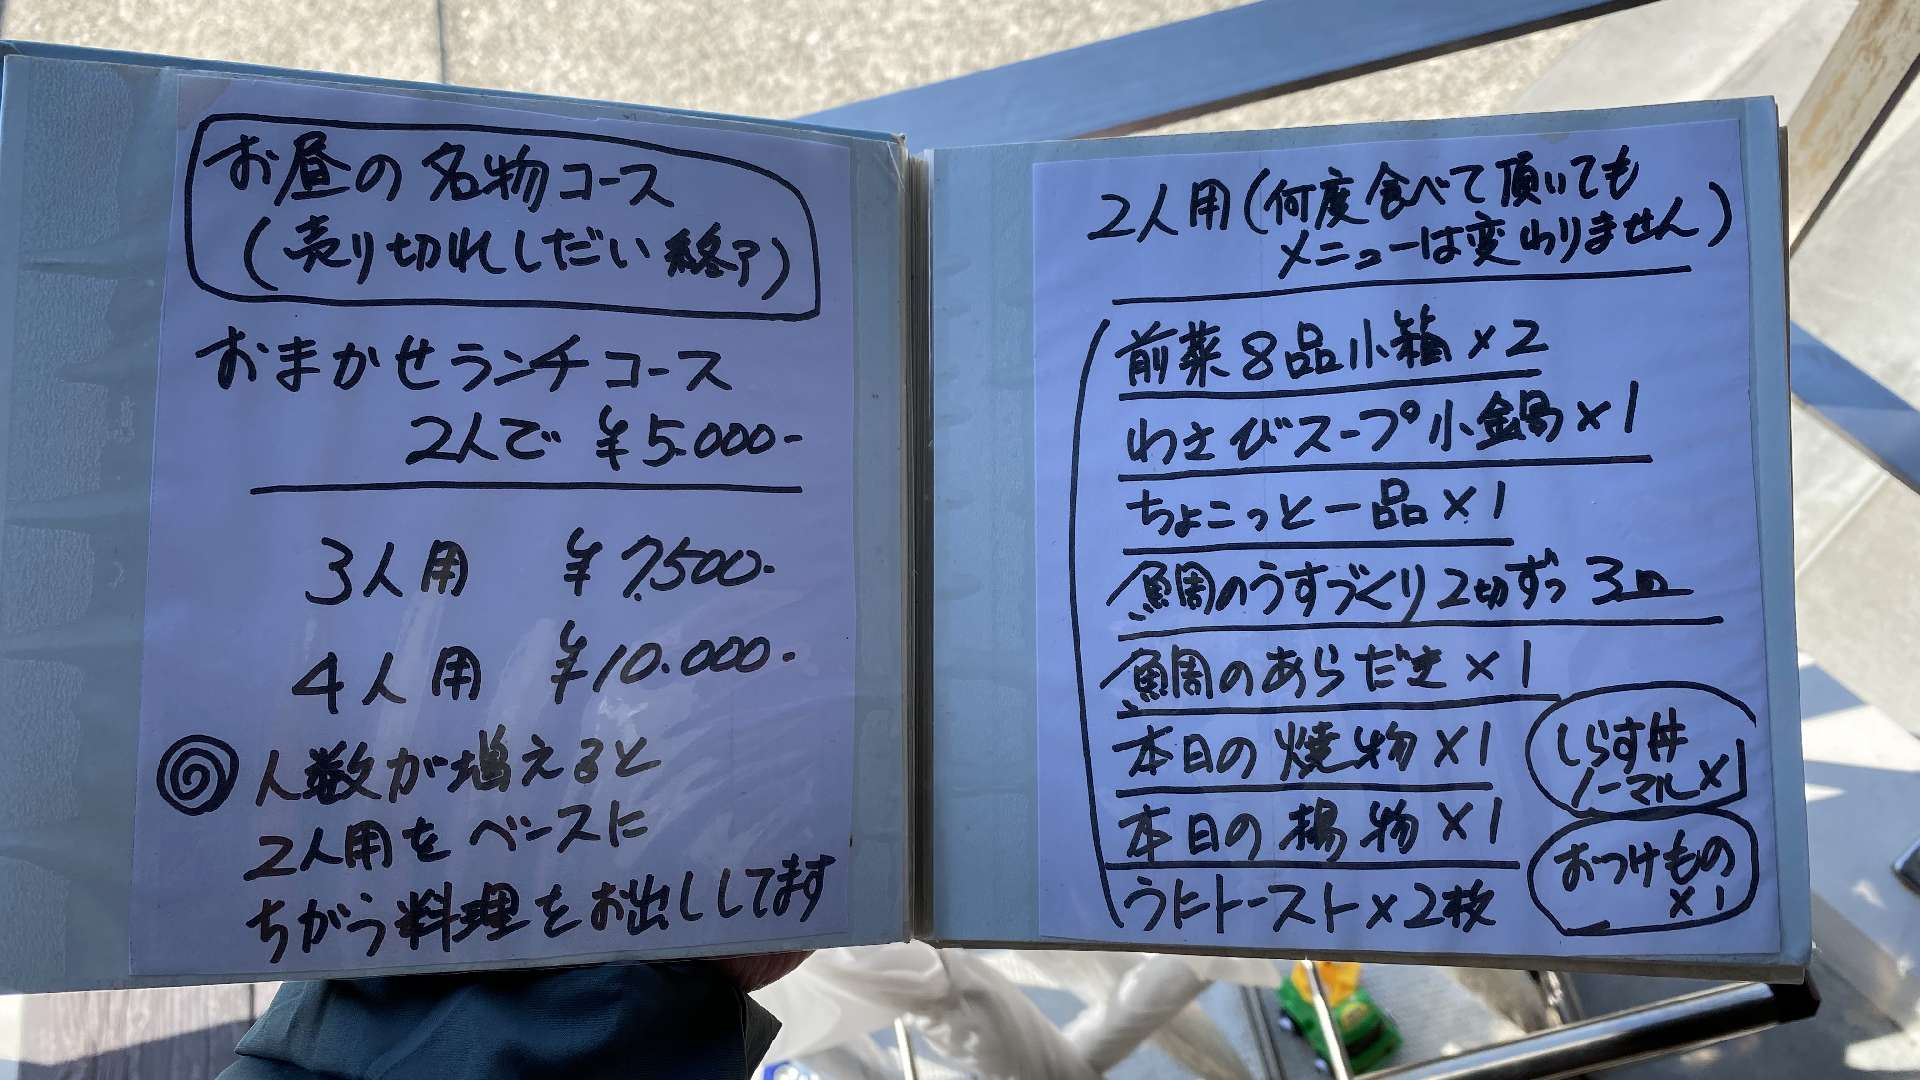 お昼の名物コース
(売り切れしだい終了)
おまかせランチコース
2人で ¥5.000-
3人用 ¥7.500-
4人用 ¥10.000-
人数が増えると
2人用をベースに
ちがう料理をお出ししてます
2人用(何度食べて頂いても
メニューは変わりません)
前菜8品小箱×2
わさびスープ小鍋×1
ちょこっと一品×1
鯛のうすづくり2切ずつ 3皿
鯛のあらだき×1
本日の焼物×1
本日の揚物×1
うにトースト×2枚
しらす丼
ノーマル×1
おつけもの
×1